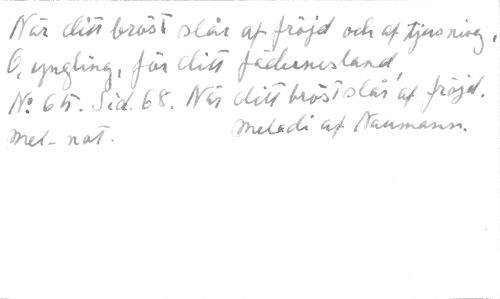 När ditt bröst slår af fröjd och af tjusning,
O, yngling, för ditt fädernesland,
No 65. Sid. 68. När ditt bröst slår af fröjd.
Mel-not. Melodi af Naumann.